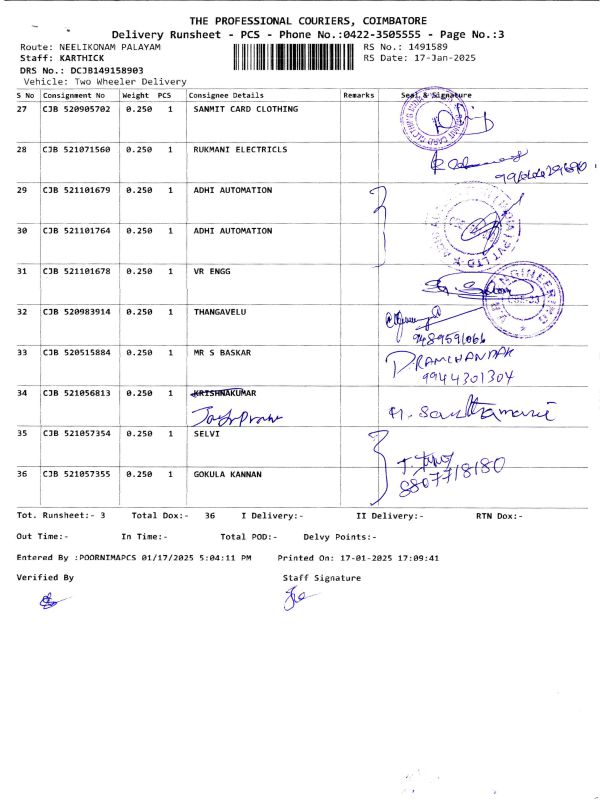 THE PROFESSIONAL COURIERS, COIMBATORE
Delivery Runsheet - PCS - Phone No.:0422-3505555 - Page No.:3
Route: NEELIKONAM PALAYAM RS No.: 1491589
Staff: KARTHICK RS Date: 17-Jan-2025
DRS No.: DCJB149158903
Vehicle: Two Wheeler Delivery
S No Consignment No Weight PCS Consignee Details Remarks Seal & Signature
27 CJB 520905702 0.250 1 SANMIT CARD CLOTHING
28 CJB 521071560 0.250 1 RUKMANI ELECTRICLS
29 CJB 521101679 0.250 1 ADHI AUTOMATION
30 CJB 521101764 0.250 1 ADHI AUTOMATION
31 CJB 521101678 0.250 1 VR ENGG
32 CJB 520983914 0.250 1 THANGAVELU
9489591066
33 CJB 520515884 0.250 1 MR S BASKAR
9944301304
34 CJB 521056813 0.250 1 KRISHNAKUMAR
35 CJB 521057354 0.250 1 SELVI
8807718180
36 CJB 521057355 0.250 1 GOKULA KANNAN
Tot. Runsheet:- 3 Total Dox:- 36 I Delivery:- II Delivery:- RTN Dox:-
Out Time:- In Time:- Total POD:- Delvy Points:-
Entered By :POORNIMAPCS 01/17/2025 5:04:11 PM Printed On: 17-01-2025 17:09:41
Verified By Staff Signature